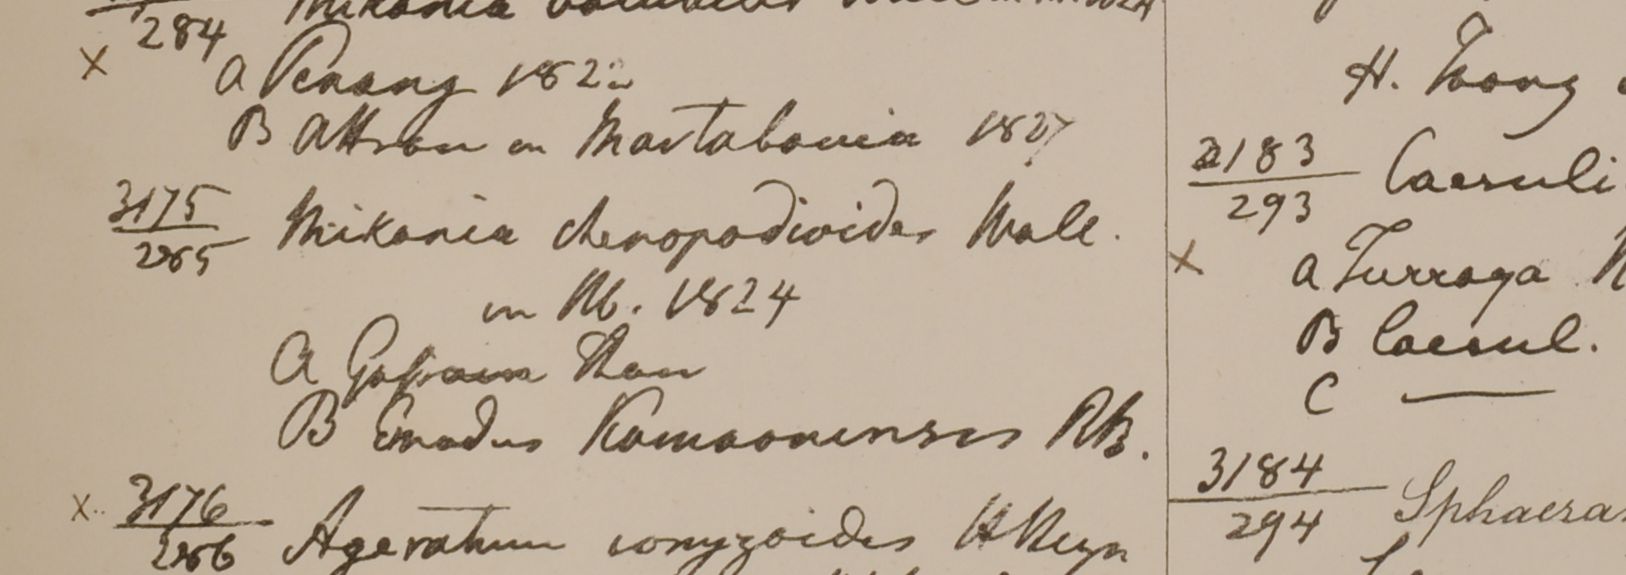 284 Mikania volubilis
× a Penang 1822
B Attran in Martabania 1827
3175
285 Mikania chenopodioides Wall.
in Hb. 1824
a Than
B Emodus Kamaonensis RB.
× 3176
286 Ageratum conyzoides H
H.
3183
293 Caesuli
× a Turraga
B Caesul.
C —
3184
294 Sphaera